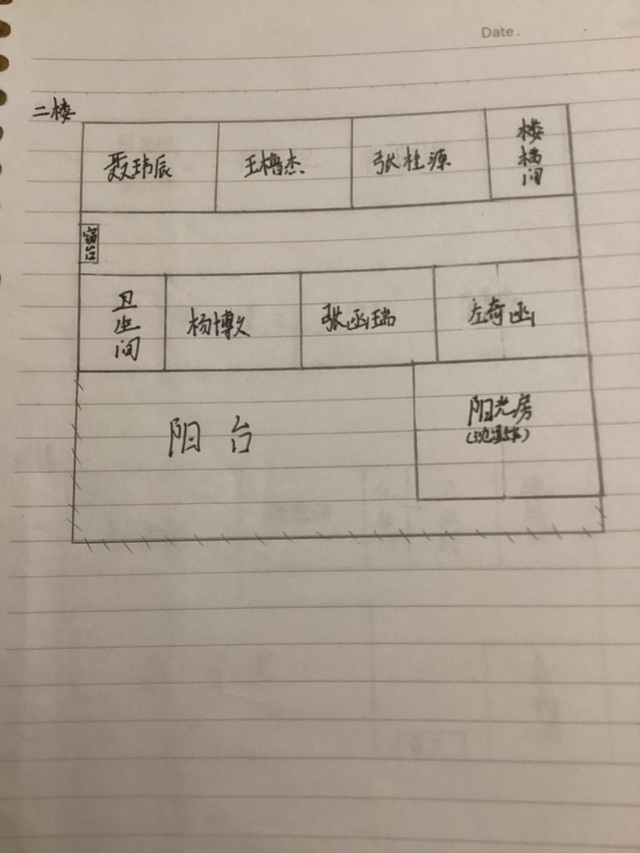 Date.
二楼
聂玮辰 王橹杰 张桂源 楼梯间
窗台
卫生间 杨博文 张函瑞 左奇函
阳台 阳光房